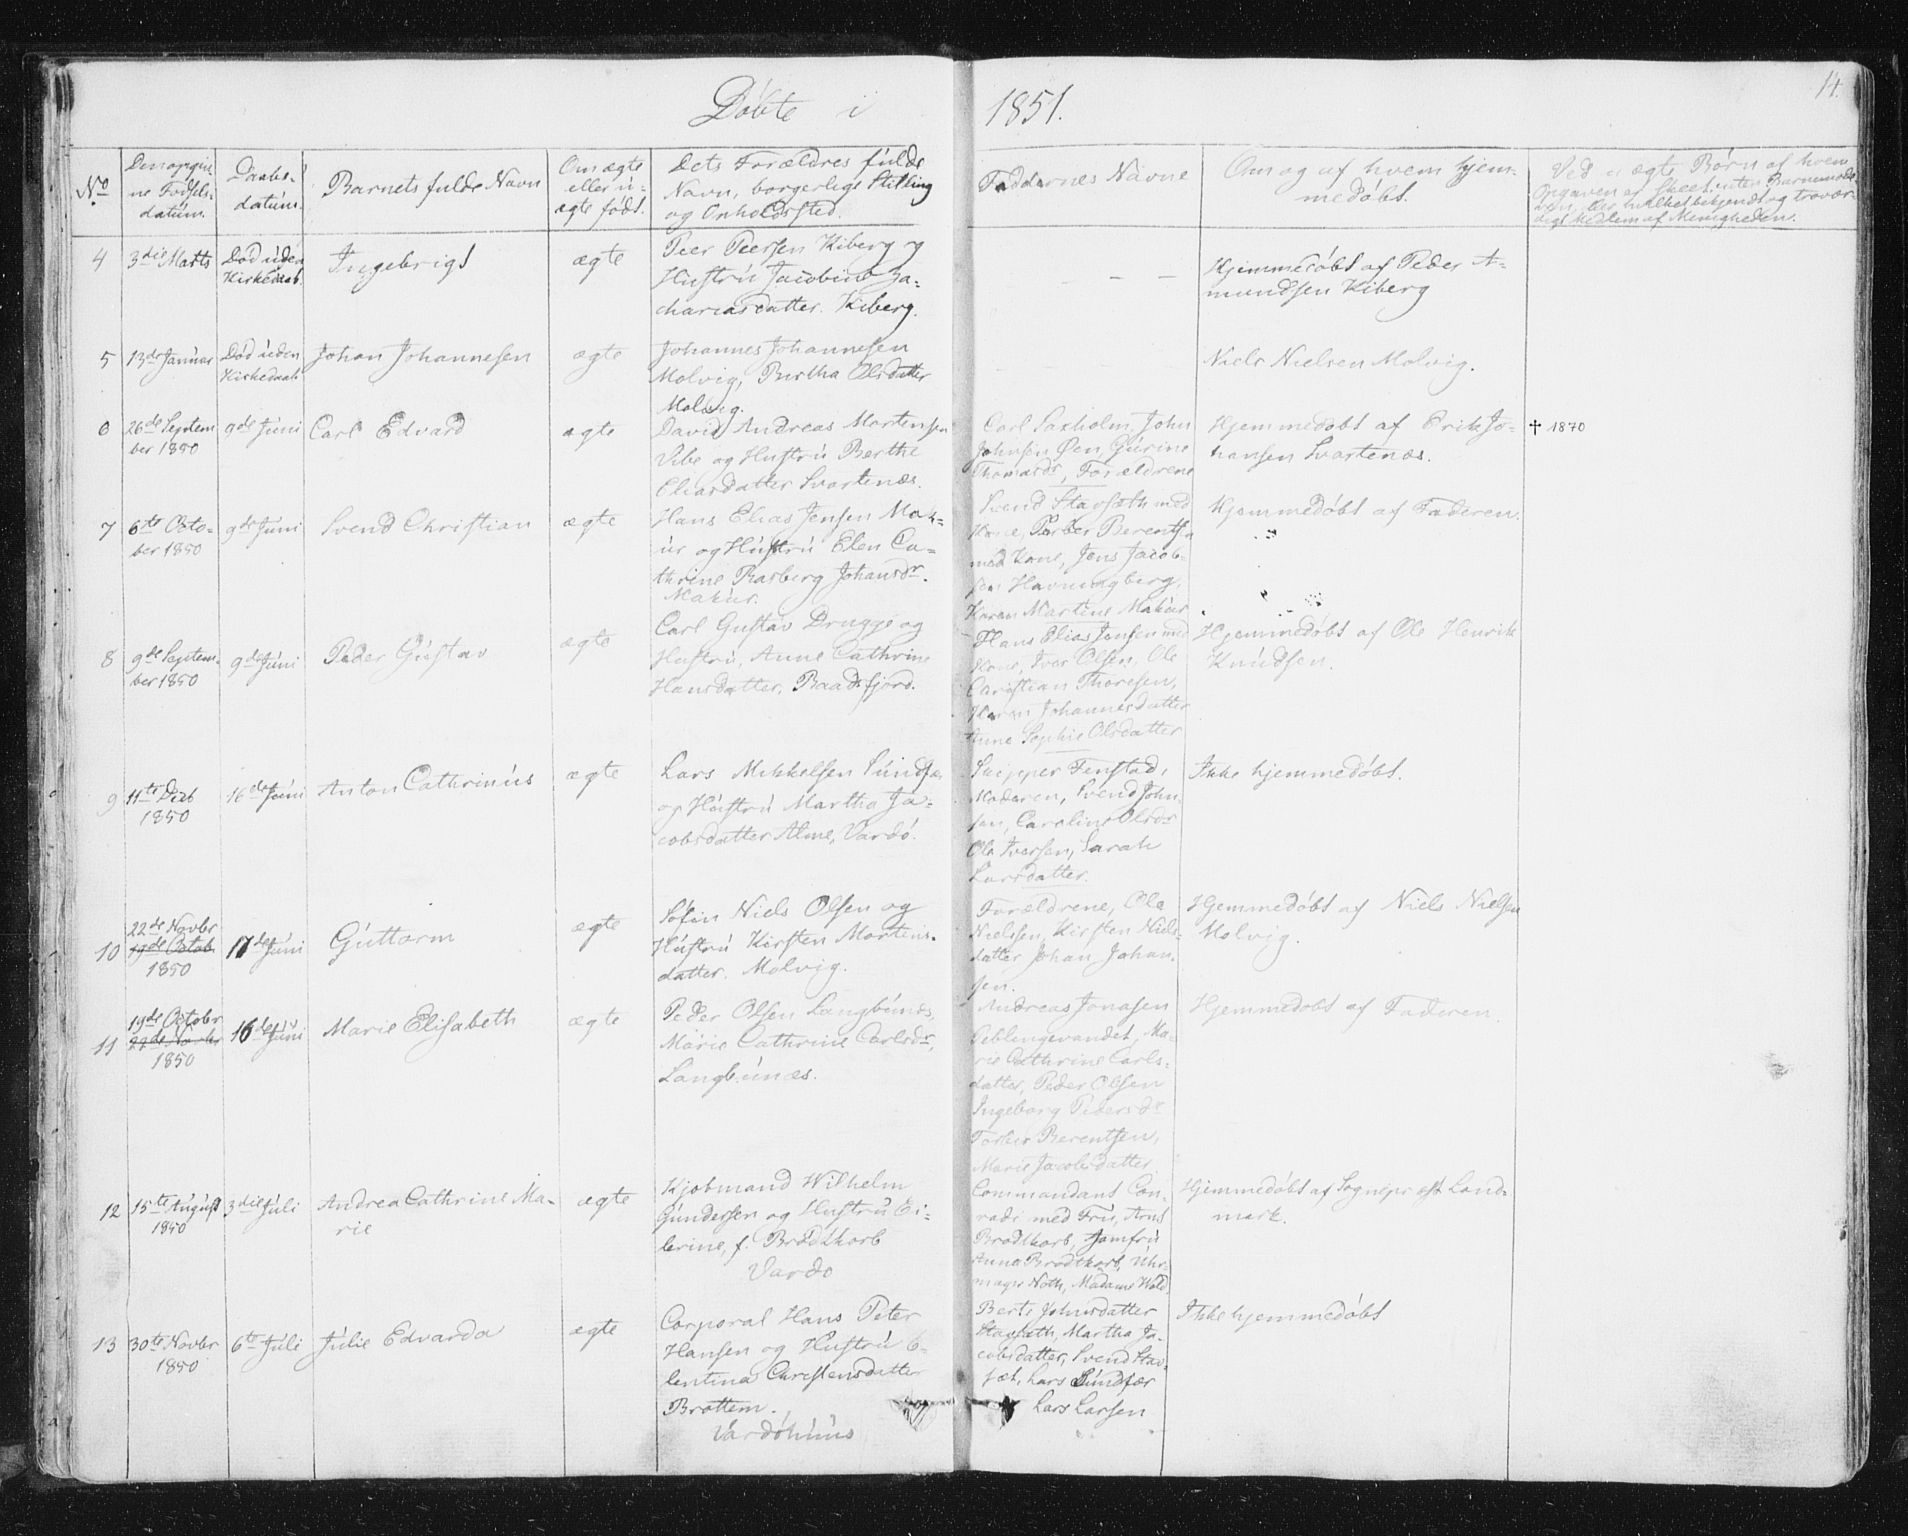 Döbte i 1851.
14.
No
Den opgiv-
ne Födsels-
datum.
Daabs-
datum.
Barnets fulde Navn
Om ægte
eller u-
ægte födt.
Dets Forældres fulde
Navn, borgerlige Stilling
og Opholdssted.
Faddernes Navne
Om og af hvem hjem-
medöbt.
Ved uægte Börn af hvem
Opgaven er skeet, uten Barnemode-
ren, eller velbekjendt og trovær-
digt Medlem af Menigheden.
4
3die Marts
Död uden
Kirkedaab.
Ingebrigt
ægte
Peer Peersen Kiberg og
Hustru Jacobine Za-
chariasdatter. Kiberg.
– – –
Hjemmedöbt af Peder A-
mundsen Kiberg
5
13de Januar
Död uden
Kirkedaab
Johan Johannesen
ægte
Johannes Johannesen
Molvig, Birtha Olsdatter
Molvig.
Niels Nielsen Molvig.
6
26de Septem
ber 1850
9de Juni
Carl Edvard
ægte
David Andreas Mortensen
Vibe og Hustru Berthe
Eliasdatter Svartenæs.
Carl Saxholm, John
Johnsen Øen, Gurine
Thomasdr, Forældrene
Hjemmedöbt af Erik Jo-
hansen Svartenæs.
† 1870
7
6te Octo-
ber 1850
9de Juni
Svend Christian
ægte
Hans Elias Jensen Mak-
ur og Hustru Elen Ca-
thrine Rasberg Johansdr.
Makur.
Svend Stavsæth med
Kone, Torber Berentsen
med Kone, Jens Jacob-
sen Havningberg,
Karen Martine Makur
Hjemmedöbt af Faderen.
8
9de Septem-
ber 1850
9de Juni
Peder Gustav
ægte
Carl Gustav Drugge og
Hustru, Anne Cathrine
Hansdatter, Baadsfjord.
Hans Elias Jensen med
Kone, Iver Olsen, Ole
Christian Thoresen,
Karen Johannesdatter
Anne Sophie Olsdatter
Hjemmedöbt af Ole Henrik
Knudsen.
9
11te Decb
1850
16de Juni
Anton Cathrinus
ægte
Lars Mikkelsen Sundfær
og Hustru Martha Ja-
cobsdatter Alme, Vardö.
Skipper Fenstad,
Moderen, Svend John-
sen, Caroline Olsdr
Ole Iversen, Sarah
Larsdatter.
Ikke hjemmedöbt.
10
22de Novbr
19de Octob.
1850
17de Juni
Guttorm
ægte
Söfin Niels Olsen og
Hustru Kirsten Mortens-
datter. Molvig.
Forældrene, Ole
Nielsen, Kirsten Niels-
datter Johan Johan-
sen.
Hjemmedöbt af Niels Nielsen
Molvig.
11
19de October
22de Novbr
1850
16de Juni
Marie Elisabeth
ægte
Peder Olsen Langbunæs,
Marie Cathrine Carlsdr,
Langbunæs.
Andreas Jonasen
Geblingevandet, Ma-
rie Cathrine Carls-
datter, Peder Olsen
Ingeborg Pedersdr
Torber Berentsen,
Marie Jacobsdatter
Hjemmedöbt af Faderen.
12
15te August
1850
3die Juli
Andrea Cathrine Ma-
rie
ægte
Kjöbmand Wilhelm
Gundersen og Hustru Ei-
lerine, f. Brodtkorb
Vardö
Commandant Con-
radi med Frue, Arnt
Brodtkorb, Jomfru
Anna Brodtkorb, Uhr-
mager Noth, Madame Wold
Hjemmedöbt af Sognepræst Land-
mark.
13
30te Novbr
1850
6te Juli
Julie Edvarda
ægte
Corporal Hans Peter
Hansen og Hustru O-
lentina Christensdatter
Brottem.
Vardöhuus
Berte Johnsdatter
Stavsæth, Martha Ja-
cobsdatter, Svend Stav-
sæt, Lars Sundfær
Lars Larsen
Ikke hjemmedöbt